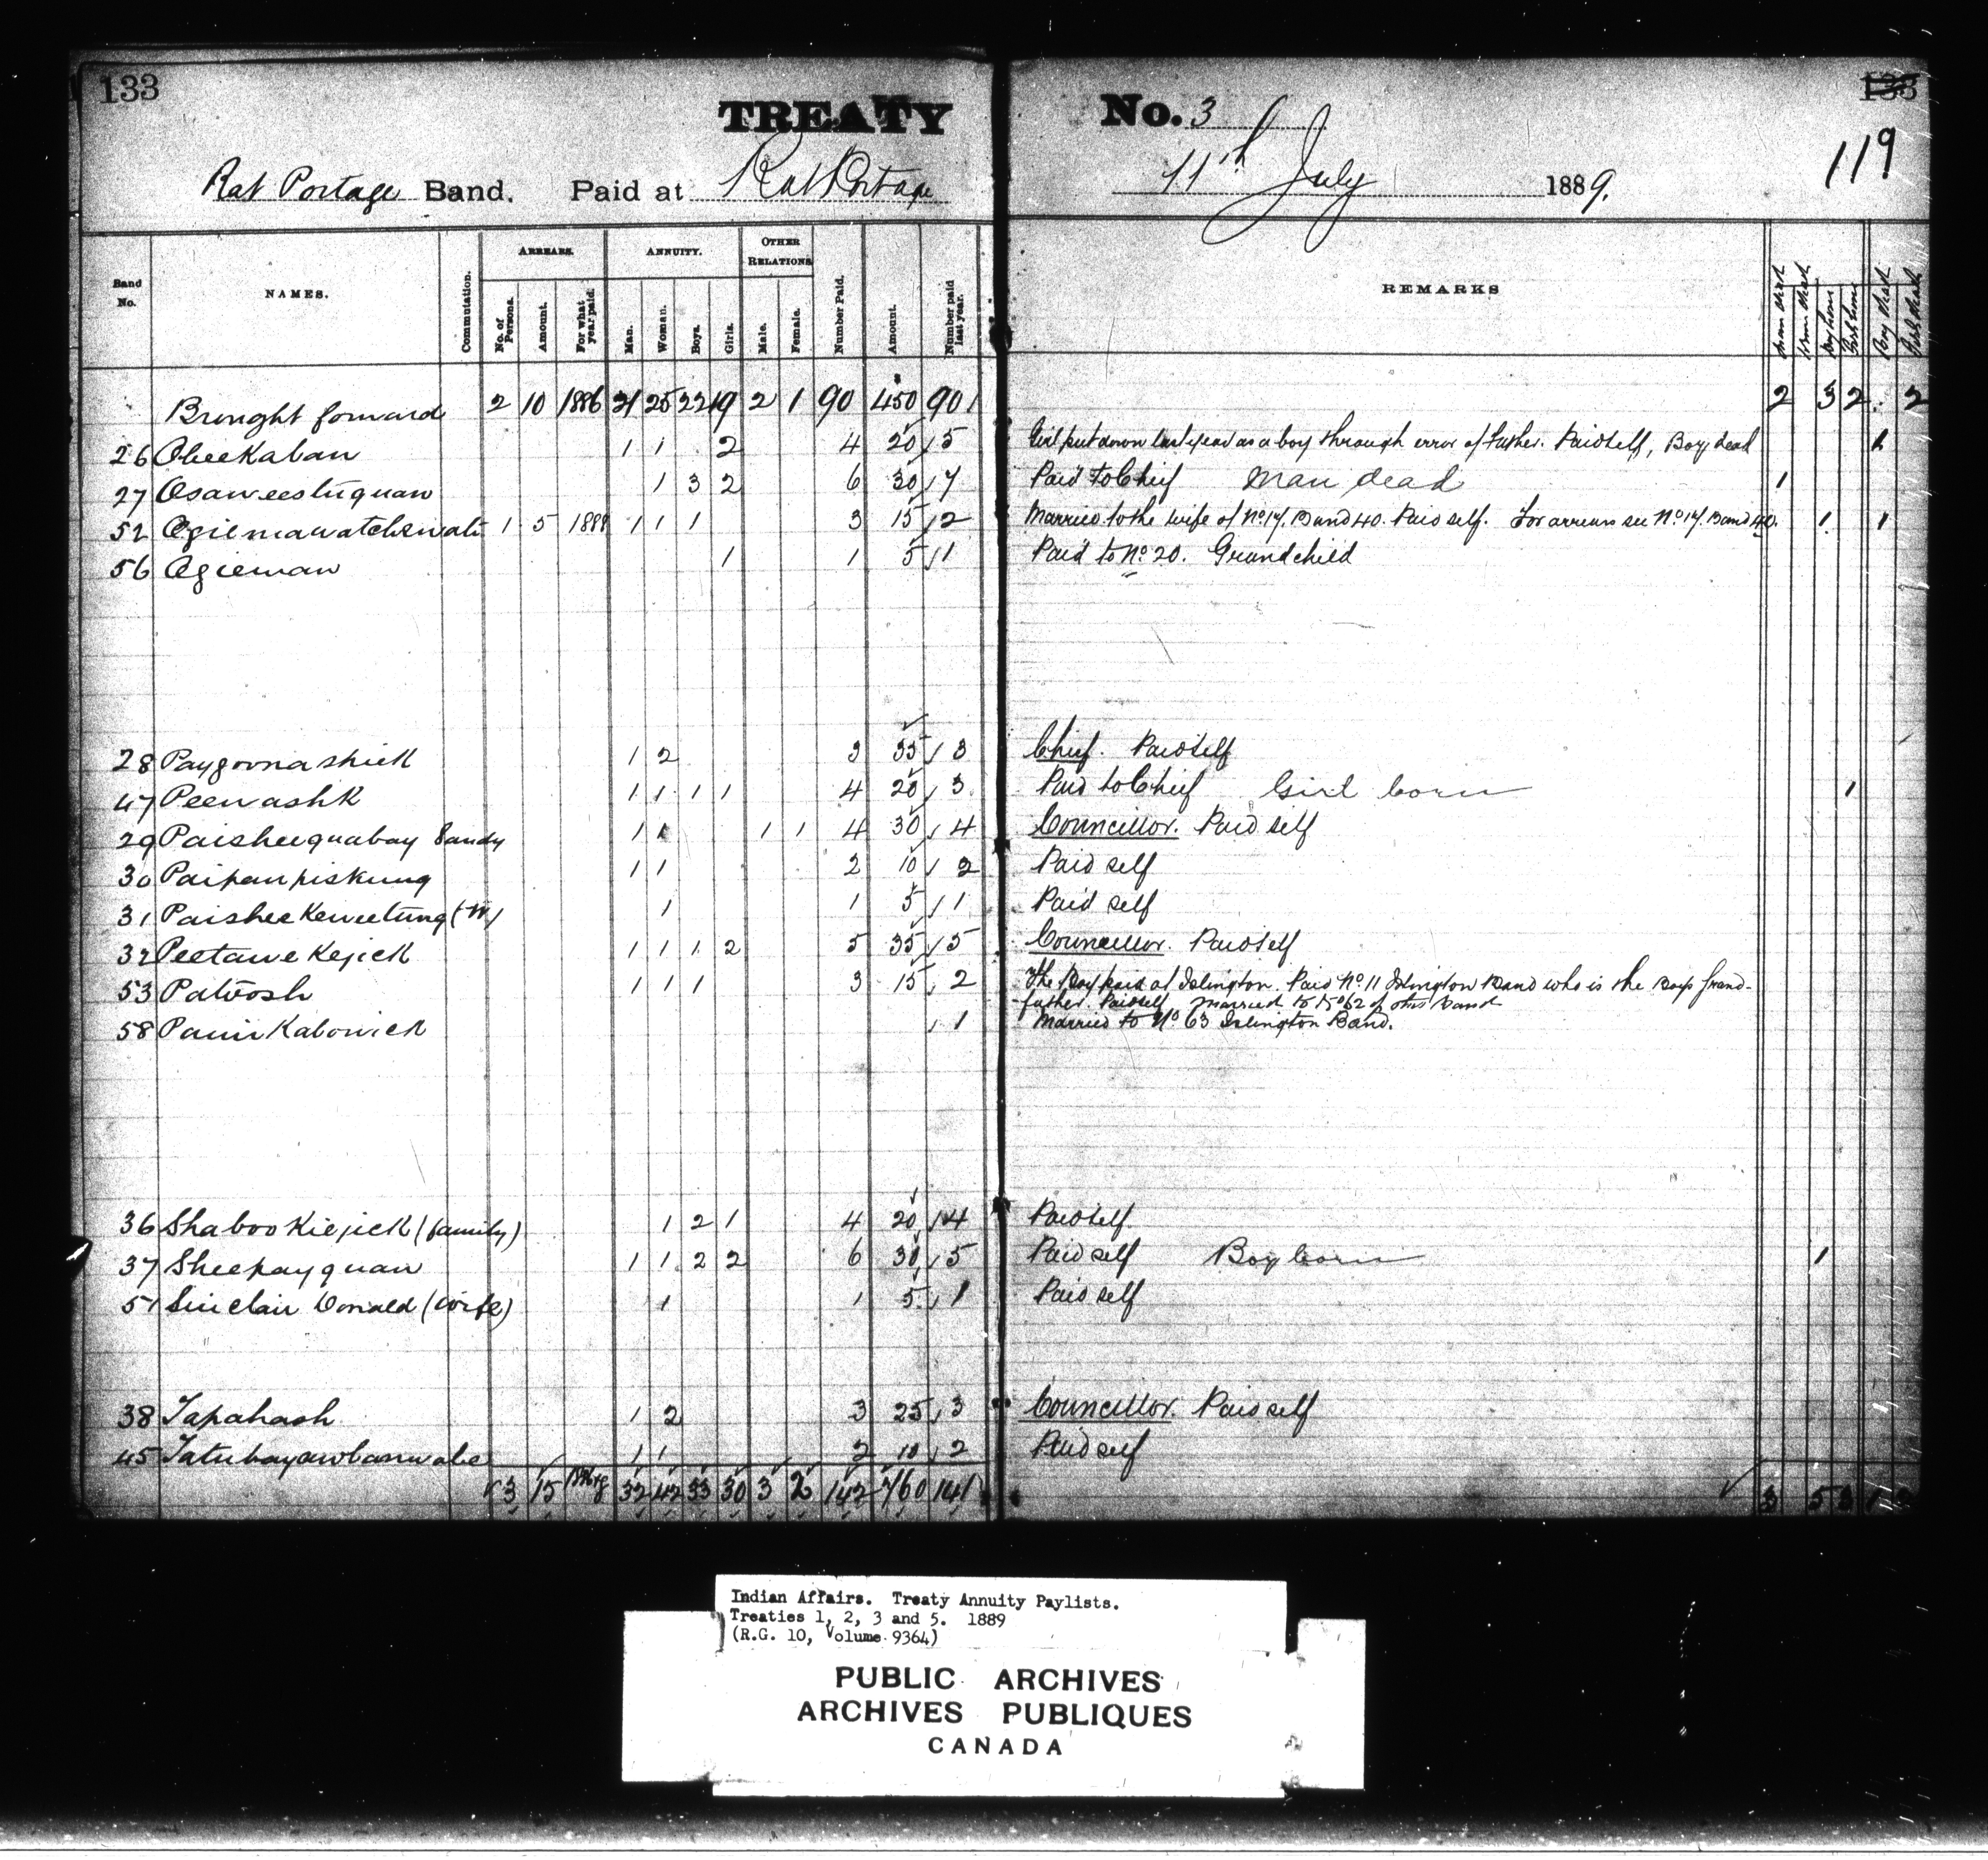 133
133
119
TREATY No. 3
Rat Portage Band. Paid at Rat Portage 11th July 1889.
Band No. NAMES. Commutation. ARREARS. ANNUITY. OTHER RELATIONS Number Paid. Amount. Number paid last year. REMARKS
No. of Persons. Amount. For what year paid. Man. Woman. Boys. Girls. Male. Female.
Brought forward 2 10 1886 21 25 22 19 2 1 90 450 90 2 3 2 2
26 Obeekaban 1 1 2 4 20 5 Girl put down last year as a boy through error of Father. Paid self, Boy dead 1
27 Osaweestiquan 1 3 2 6 30 7 Paid to Chief Man dead 1
52 1 5 1888 1 1 1 3 15 2 Married to the wife of No 17. Band 40. Paid self. For arrears see No 17. Band 40. 1 1
56 Ogieman 1 1 5 1 Paid to No 20. Grandchild
28 Paygoonashick 1 2 3 35 3 Chief. Paid self
47 Peewashk 1 1 1 1 4 20 3 Paid to Chief Girl born 1
29 Paisheequabay Sandy 1 1 1 1 4 30 4 Councillor. Paid self
30 Paipanpiskung 1 1 2 10 2 Paid self
31 Paisheekeweetung (W) 1 1 5 1 Paid self
32 Peetawekejick 1 1 1 2 5 35 5 Councillor. Paid self
53 Patoosh 1 1 1 3 15 2 The Boy paid at Islington. Paid No 11 Islington Band who is the Boys Grand-
father. Paid self Married to No 62 of this Band
58 1 Married to No 63 Islington Band.
36 Shabookiejick (family) 1 2 1 4 20 4 Paid self
37 Sheepayquan 1 1 2 2 6 30 5 Paid self Boy born 1
51 Sinclair Donald (Wife) 1 1 5 1 Paid self
38 Tapahash 1 2 3 25 3 Councillor. Paid self
45 1 1 2 10 2 Paid self
3 15 32 42 33 30 3 2 142 760 141 3 5 3
Indian Affairs. Treaty Annuity Paylists.
Treaties 1, 2, 3 and 5. 1889
(R.G. 10, Volume 9364)
PUBLIC ARCHIVES
ARCHIVES PUBLIQUES
CANADA